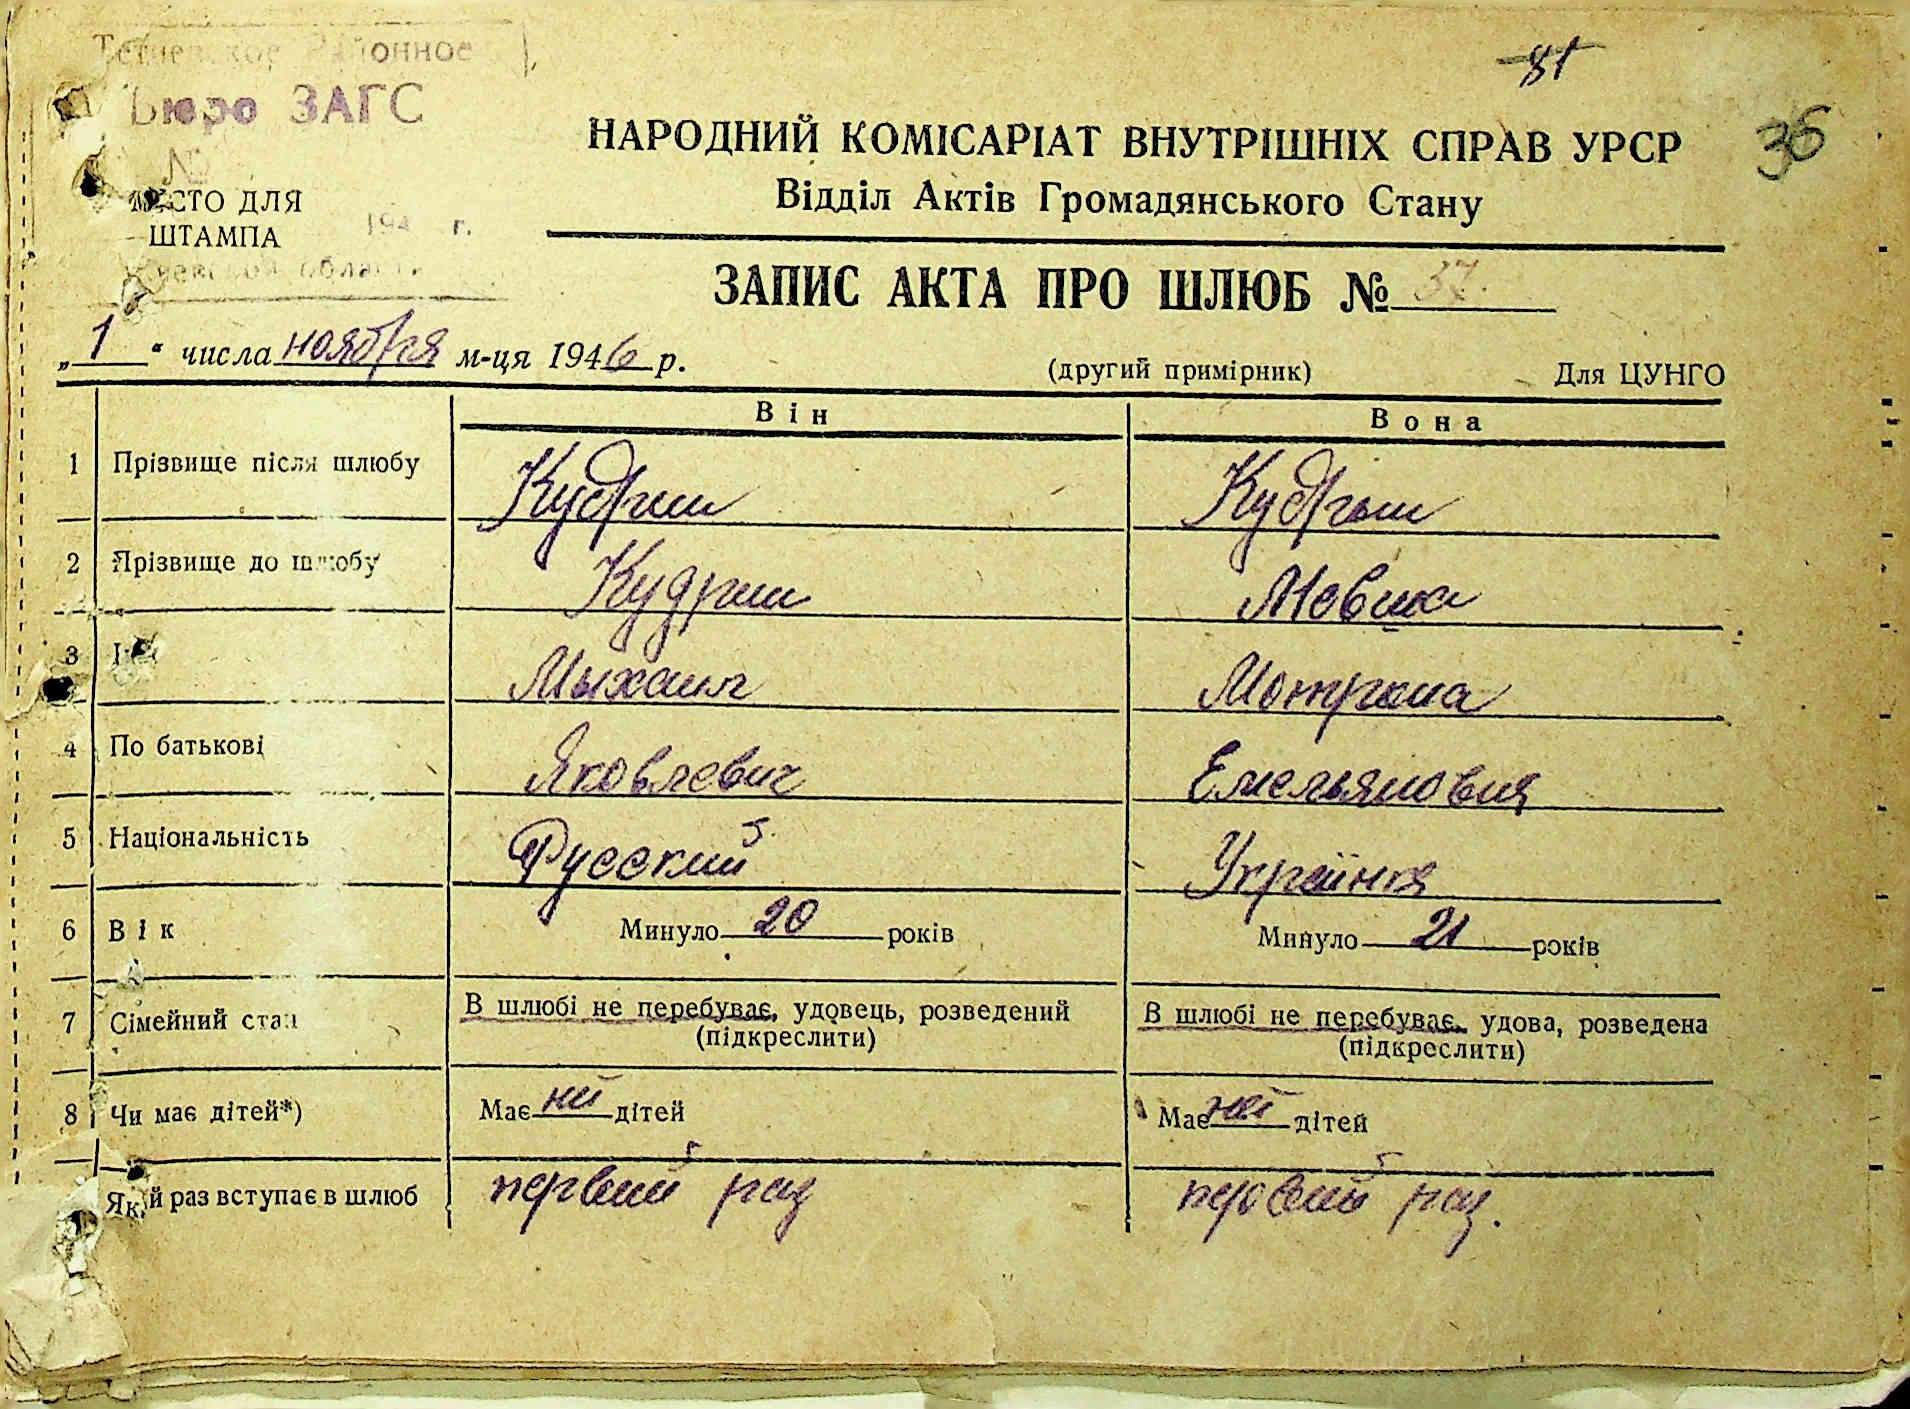 Районное
Бюро ЗАГС
№
81
36
МЕСТО ДЛЯ
ШТАМПА
194 г.
области
НАРОДНИЙ КОМІСАРІАТ ВНУТРІШНІХ СПРАВ УРСР
Відділ Актів Громадянського Стану
ЗАПИС АКТА ПРО ШЛЮБ № 37.
„1“ числа ноября м-ця 1946 р.
(другий примірник) Для ЦУНГО
Він Вона
1 Прізвище після шлюбу Кудрин Кудрын
2 Прізвище до шлюбу Кудрин
3 Мыхаил Мотрына
4 По батькові Яковлевич Емельяновна
5 Національність Русский Украінка
6 Вік Минуло 20 років Минуло 21 років
7 Сімейний стан В шлюбі не перебуває, удовець, розведений В шлюбі не перебуває, удова, розведена
(підкреслити) (підкреслити)
8 Чи має дітей*) Має дітей Має дітей
Який раз вступає в шлюб первый раз первый раз.